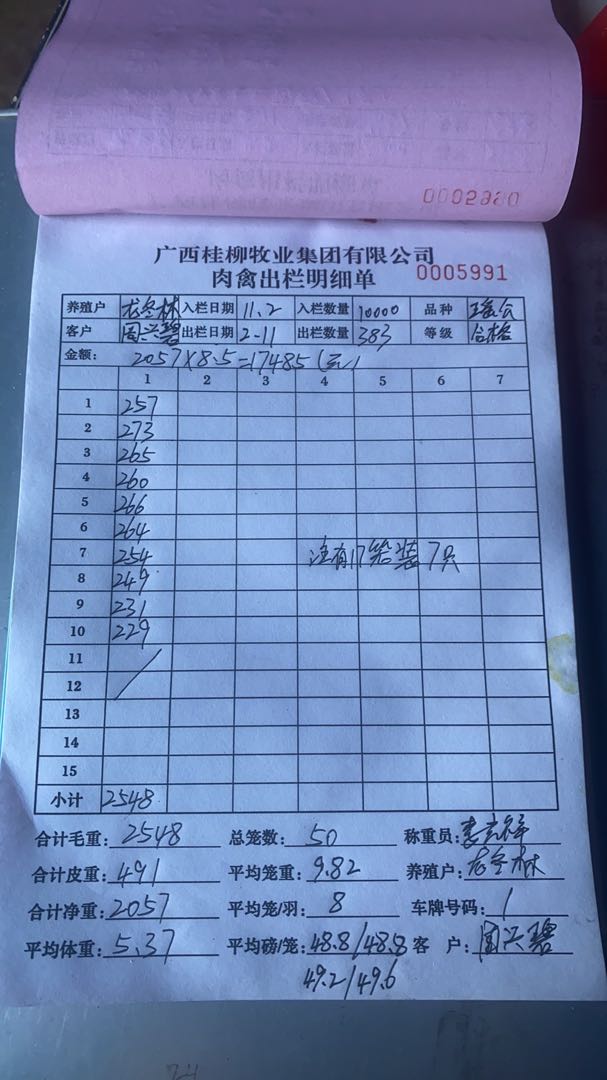 0005980
广西桂柳牧业集团有限公司
肉禽出栏明细单 0005991
养殖户 龙冬林 入栏日期 11.2 入栏数量 10000 品种
客户 周兴碧 出栏日期 2-11 出栏数量 383 等级 合格
金额: 2057×8.5=17485(元)
1 2 3 4 5 6 7
1 257
2 273
3 265
4 260
5 266
6 264
7 254 注有17笼装7只
8 249
9 231
10 229
11
12
13
14
15
小计 2548
合计毛重: 2548 总笼数: 50 称重员:
合计皮重: 491 平均笼重: 9.82 养殖户: 龙冬林
合计净重: 2057 平均笼/羽: 8 车牌号码: 1
平均体重: 5.37 平均磅/笼: 48.8/48.8 客 户: 周兴碧
49.2/49.6